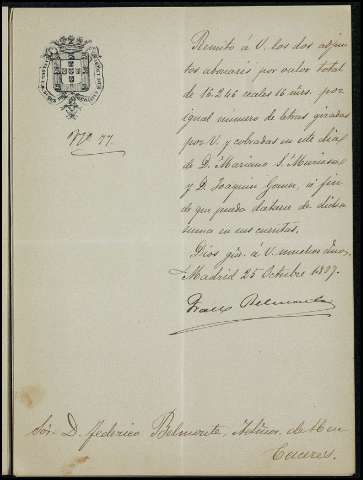 Nº 77
Remito á V. los dos adjun
tos abonarés por valor total
de 16.246 reales 16 mrs. por
igual numero de letras giradas
por V. y cobradas en este día
de D. Mariano S.
y D. Joaquin á fin
de que pueda datarse de dicha
suma en sus cuentas.
Dios gue. á V. muchos años.
Madrid 25 Octubre
Belmonte
Sor. D. Federico Belmonte, de
Caceres.